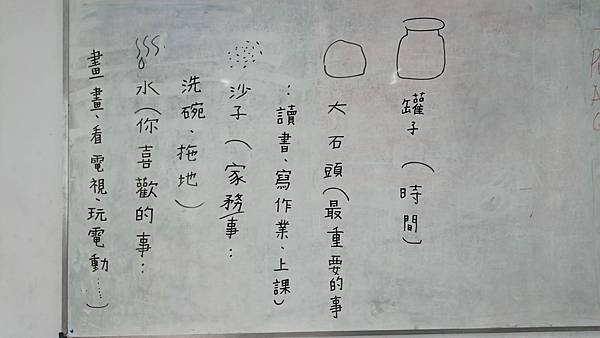 罐子（時間）
大石頭（最重要的事
：讀書、寫作業、上課）
沙子（家務事：
洗碗、拖地）
水（你喜歡的事：
畫畫、看電視、玩電動……）